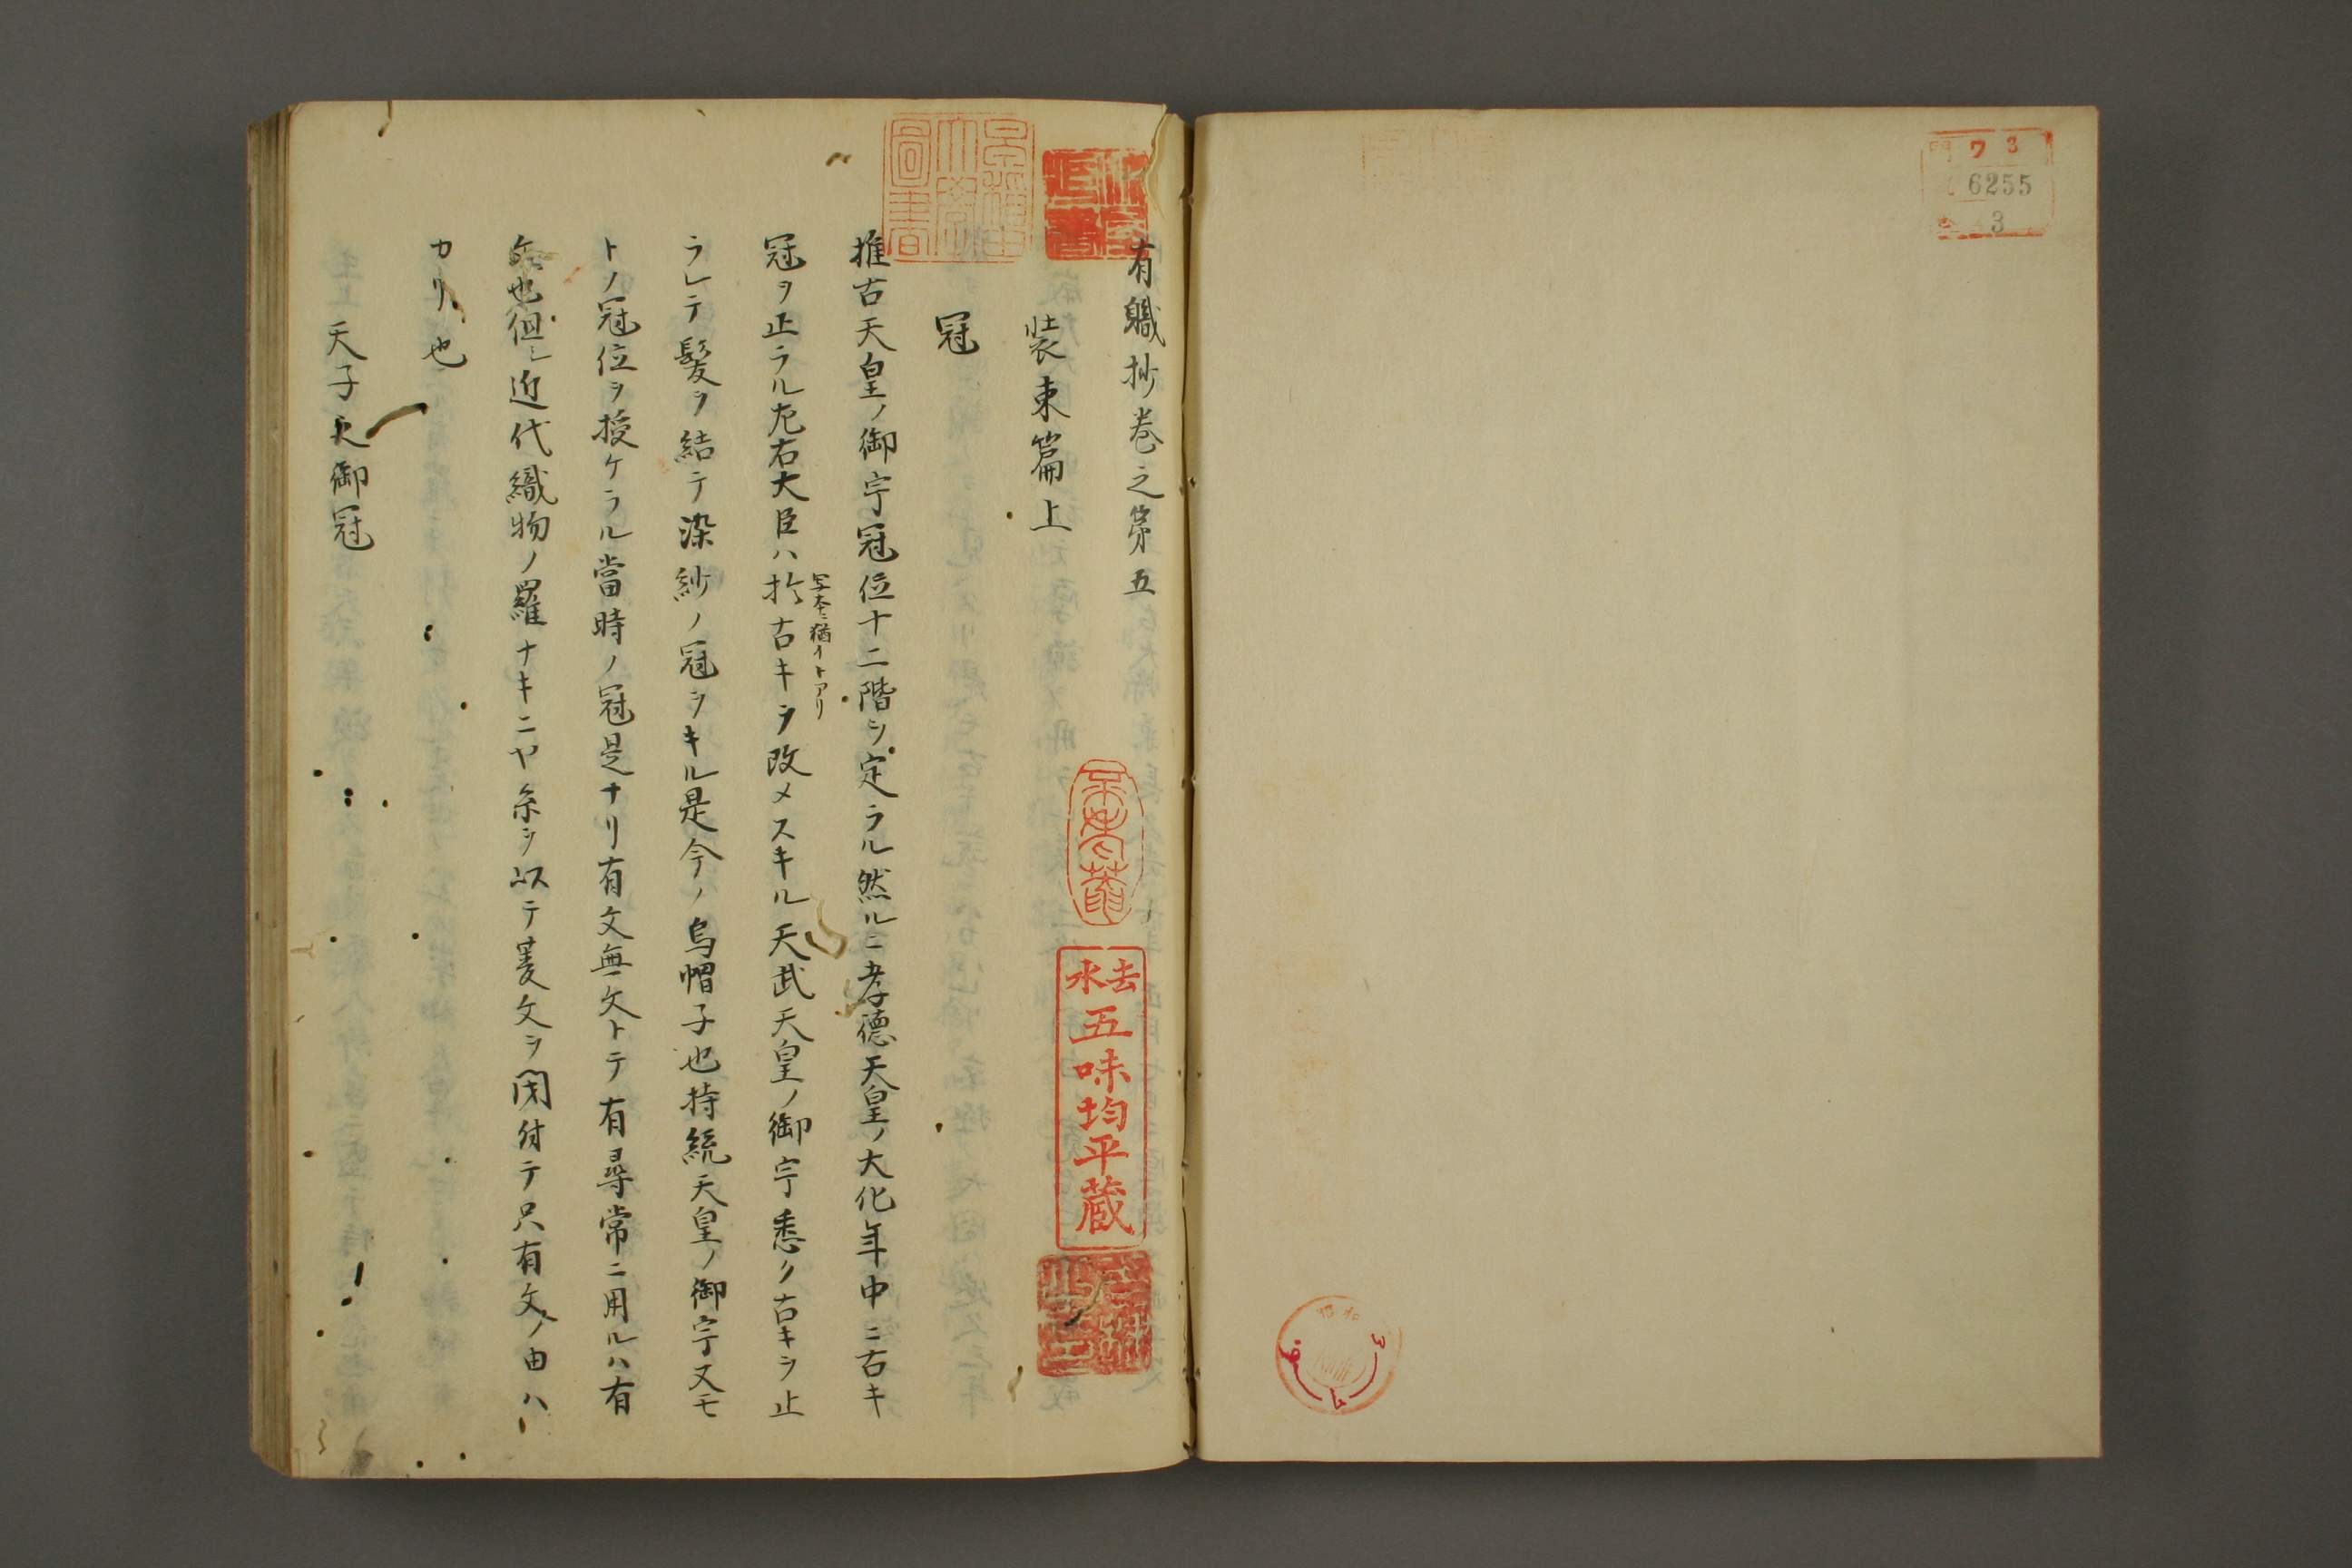 ワ3
6255
3
有職抄巻之第五
装束篇上
冠
推古天皇ノ御宇冠位十二階ヲ定ラル然ルニ孝徳天皇ノ大化年中ニ古キ
冠ヲ止ラル左右大臣ハ於古キヲ改メスキル天武天皇ノ御宇悉ク古キヲ止
写本ニ猶イトアリ
ラレテ髪ヲ結テ染紗ノ冠ヲキル是今ノ烏帽子也持統天皇ノ御宇又モ
トノ冠位ヲ授ケラル當時ノ冠是ナリ有文無文トテ有尋常ニ用ルハ有
也但シ近代織物ノ羅ナキニヤ糸ヲ以テ菱文ヲ閉付テ只有文ノ由ハ
カリ也
天子御冠
去水
五味均平蔵